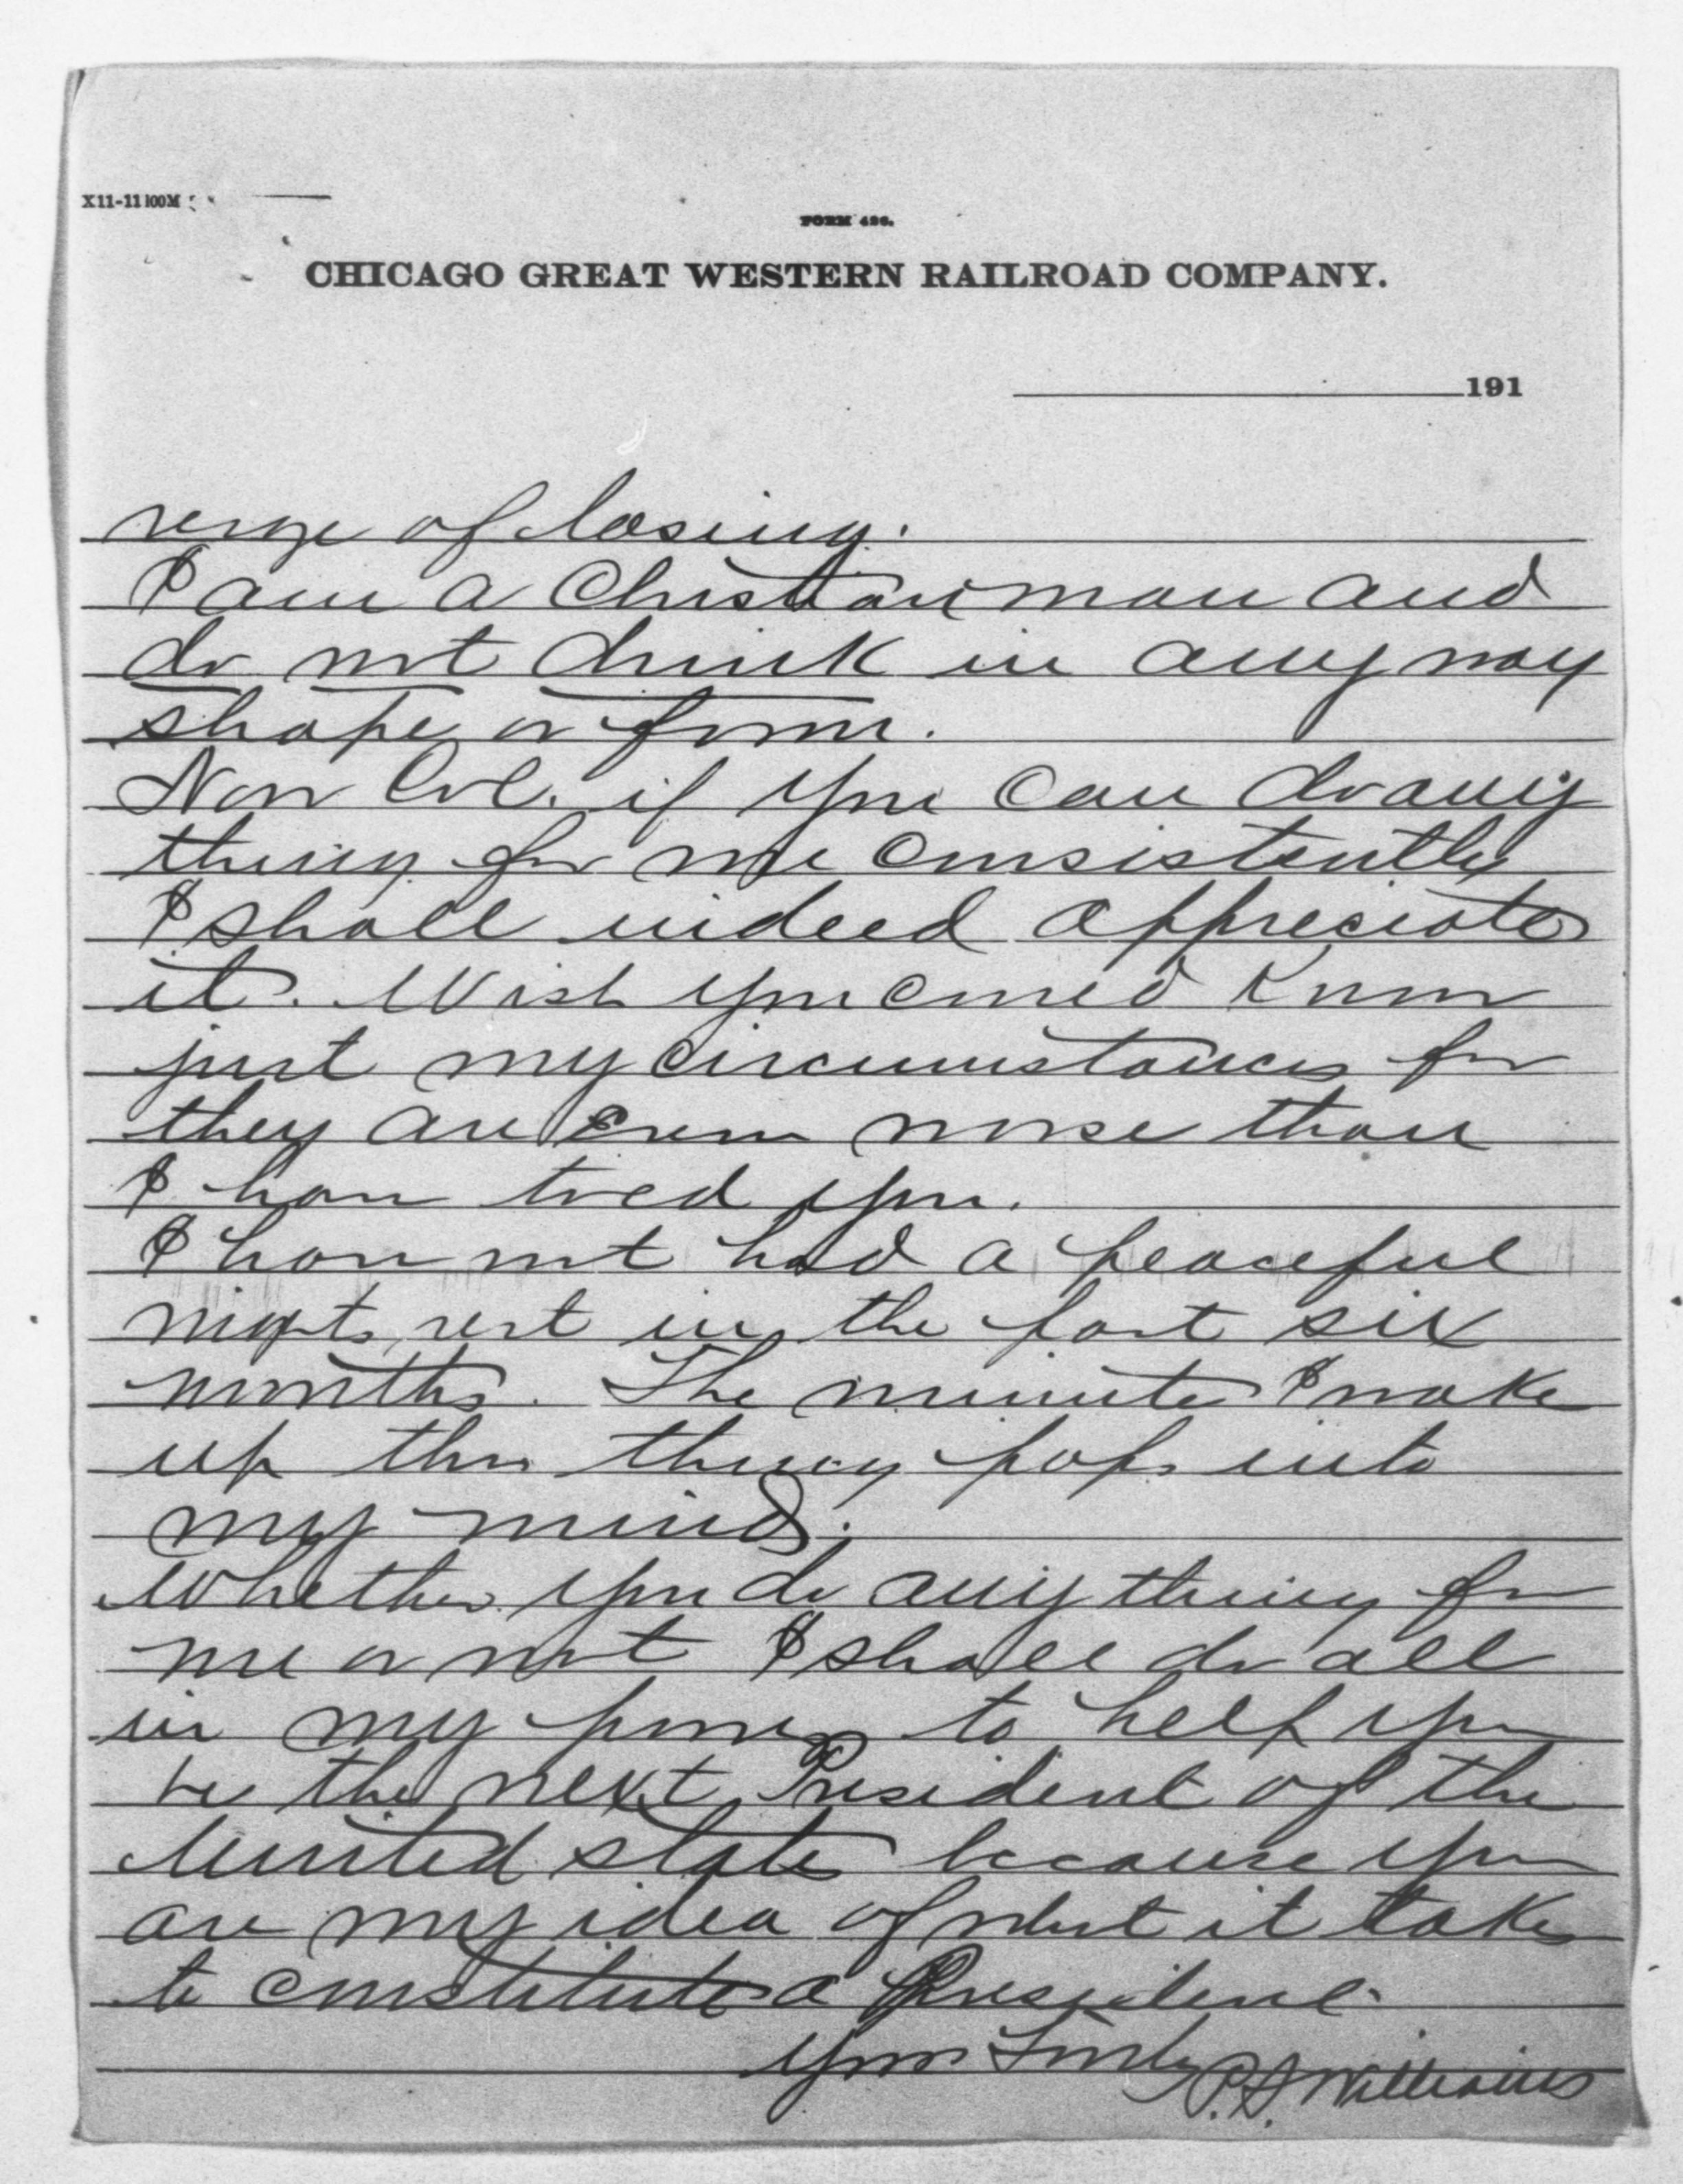 X11-11 100M
FORM 426.
CHICAGO GREAT WESTERN RAILROAD COMPANY.
191
verge of loosing.
I am a Christian man and
do not drink in any way
shape or form.
Now Col. if you can do any
thing for me consistently
I shall indeed appreciate
it. Wish you could know
just my circumstances for
they are even worse than
I have told you.
I have not had a peaceful
nights rest in the past six
months. The minute I wake
up this thing pops into
my mind.
Whether you do any thing for
me or not I shall do all
in my power to help you
be the next President of the
United States because you
are my idea of what it takes
to constitute a President.
Yours Truly P.S. Williams